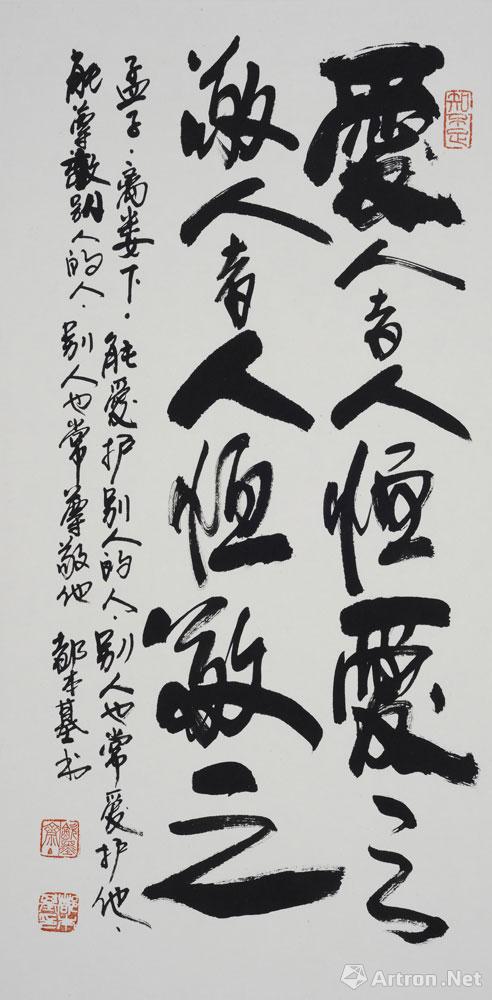 愛人者人恒愛之
敬人者人恒敬之
孟子·离娄下·能愛护别人的人·别人也常爱护他·
能尊敬别人的人·别人也常尊敬他 都本基书
知不足
Artron.Net